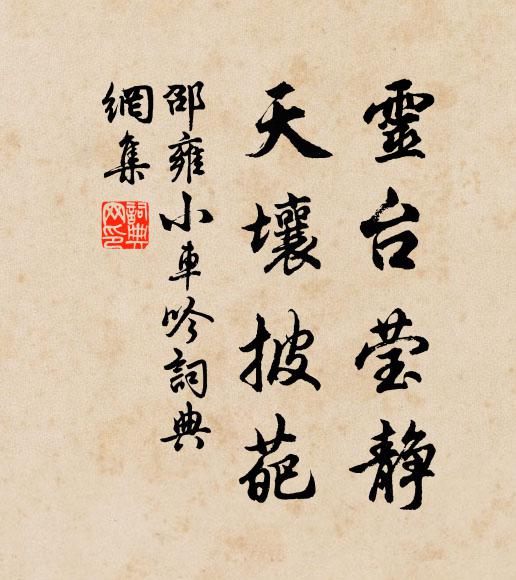 靈台莹静
天壤披葩
邵雍小車吟詞典
網集
詞典網印